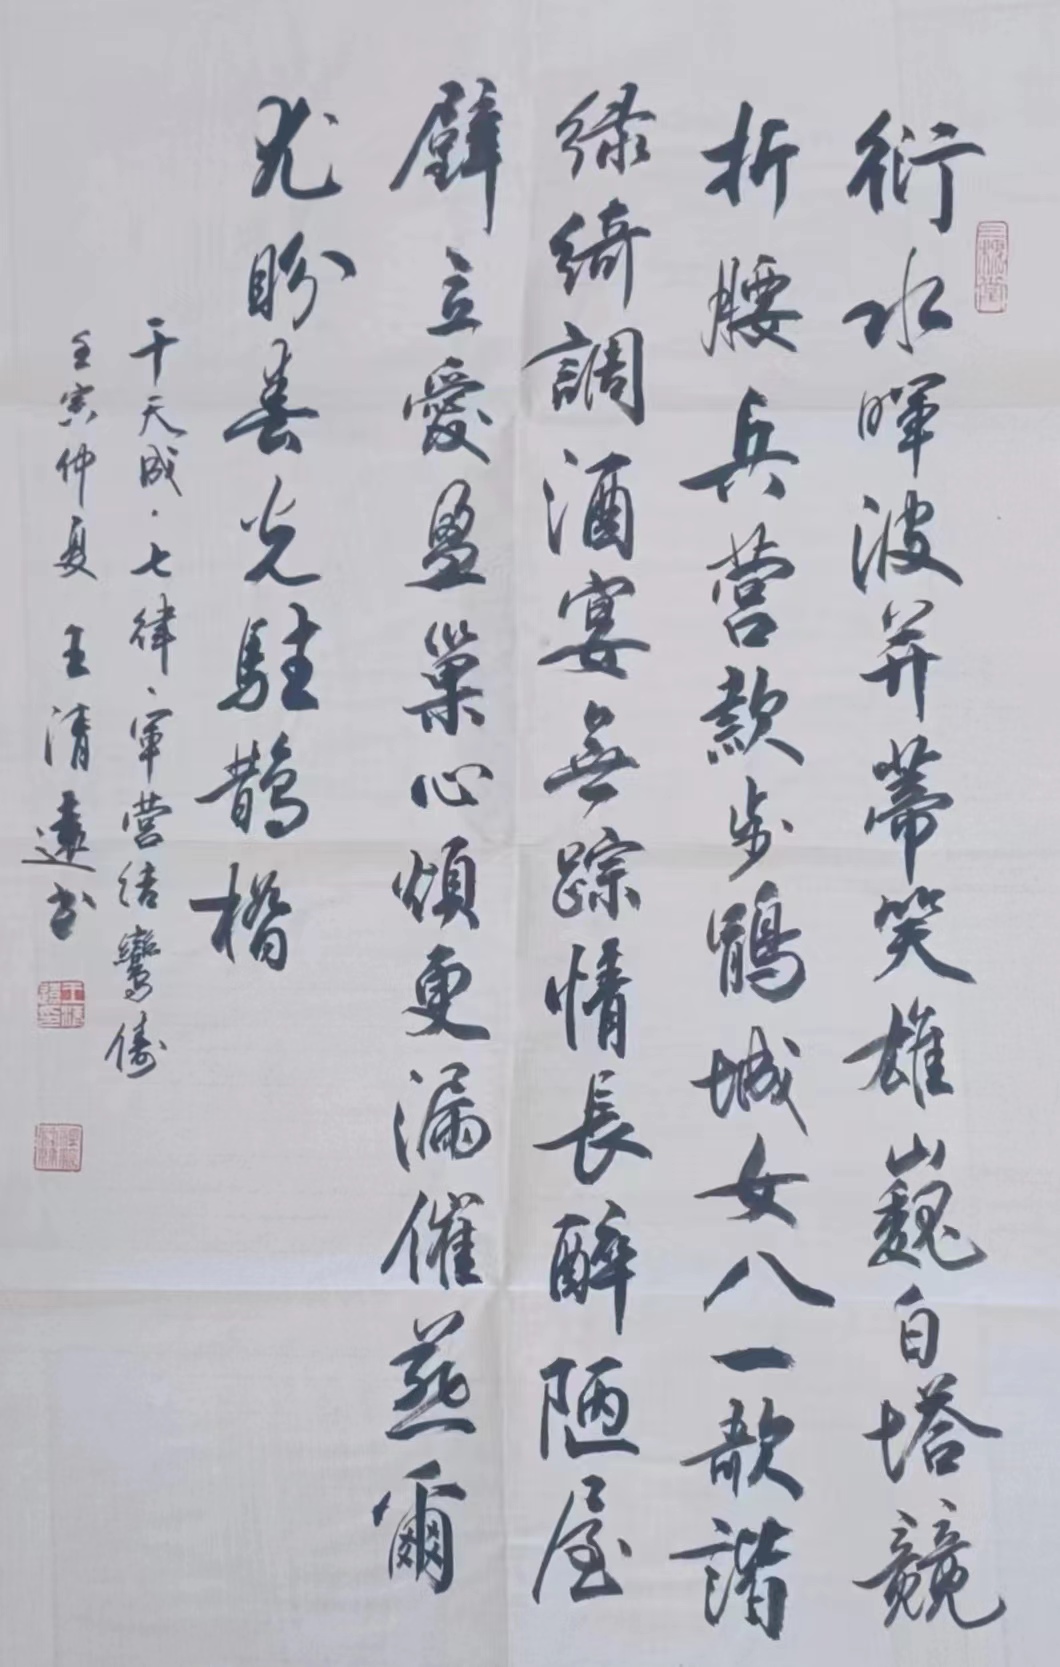 衍水暉波并蒂笑雄巍白塔競
折腰兵營款步鶄城女八一歌諧
綠綺調酒宴無踪情長醉陋屋
壁立愛盈巢心煩更漏催燕爾
尤盼春光駐鵲橋
于天成·七律·军营结鸞俦
壬寅仲夏 王清遠书